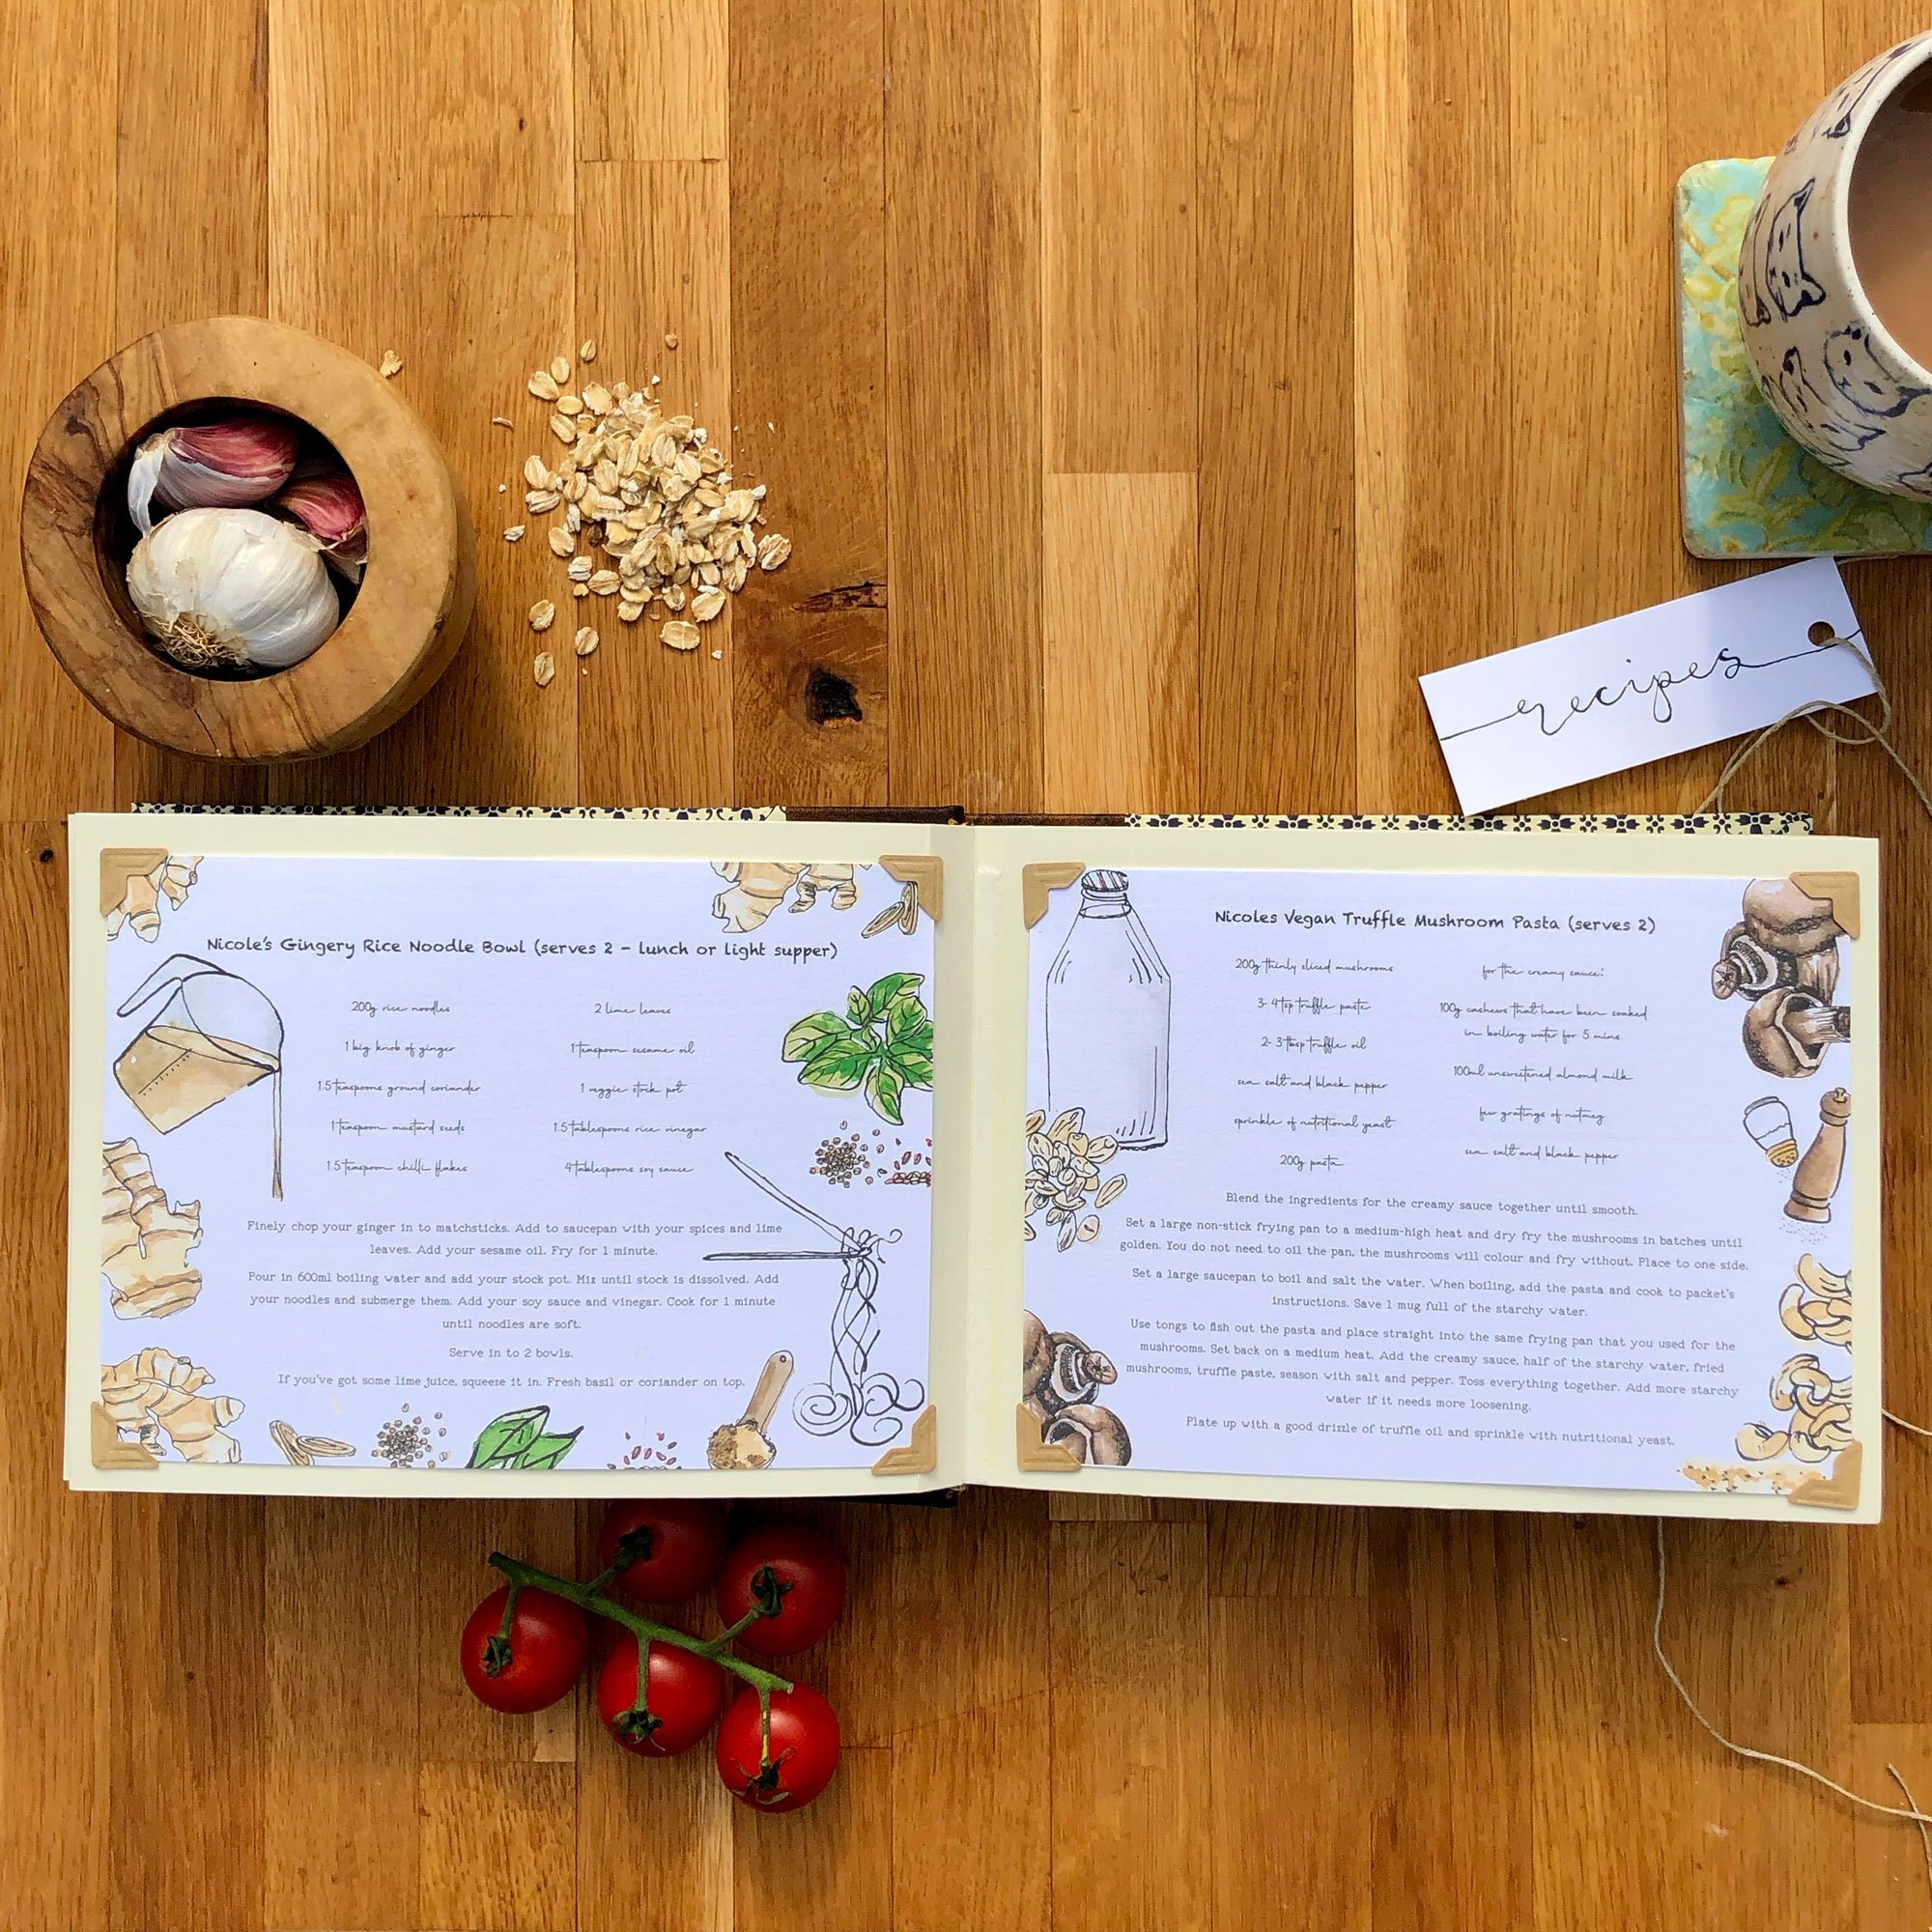 recipes
Nicole's Gingery Rice Noodle Bowl (serves 2 - lunch or light supper)
200g rice noodles
1 big knob of ginger
1.5 teaspoons ground coriander
1 teaspoon mustard seeds
1.5 teaspoon chilli flakes
2 lime leaves
1 teaspoon sesame oil
1 veggie stock pot
1.5 tablespoons rice vinegar
4 tablespoons soy sauce
Finely chop your ginger in to matchsticks. Add to saucepan with your spices and lime
leaves. Add your sesame oil. Fry for 1 minute.
Pour in 600ml boiling water and add your stock pot. Mix until stock is dissolved. Add
your noodles and submerge them. Add your soy sauce and vinegar. Cook for 1 minute
until noodles are soft.
Serve in to 2 bowls.
If you've got some lime juice, squeeze it in. Fresh basil or coriander on top.
Nicoles Vegan Truffle Mushroom Pasta (serves 2)
200g thinly sliced mushrooms
3-4 tsp truffle paste
2-3 tbsp truffle oil
sea salt and black pepper
sprinkle of nutritional yeast
200g pasta
for the creamy sauce:
100g cashews that have been soaked
in boiling water for 5 mins
100ml unsweetened almond milk
few gratings of nutmeg
sea salt and black pepper
Blend the ingredients for the creamy sauce together until smooth.
Set a large non-stick frying pan to a medium-high heat and dry fry the mushrooms in batches until
golden. You do not need to oil the pan, the mushrooms will colour and fry without. Place to one side.
Set a large saucepan to boil and salt the water. When boiling, add the pasta and cook to packet's
instructions. Save 1 mug full of the starchy water.
Use tongs to fish out the pasta and place straight into the same frying pan that you used for the
mushrooms. Set back on a medium heat. Add the creamy sauce, half of the starchy water, fried
mushrooms, truffle paste, season with salt and pepper. Toss everything together. Add more starchy
water if it needs more loosening.
Plate up with a good drizzle of truffle oil and sprinkle with nutritional yeast.